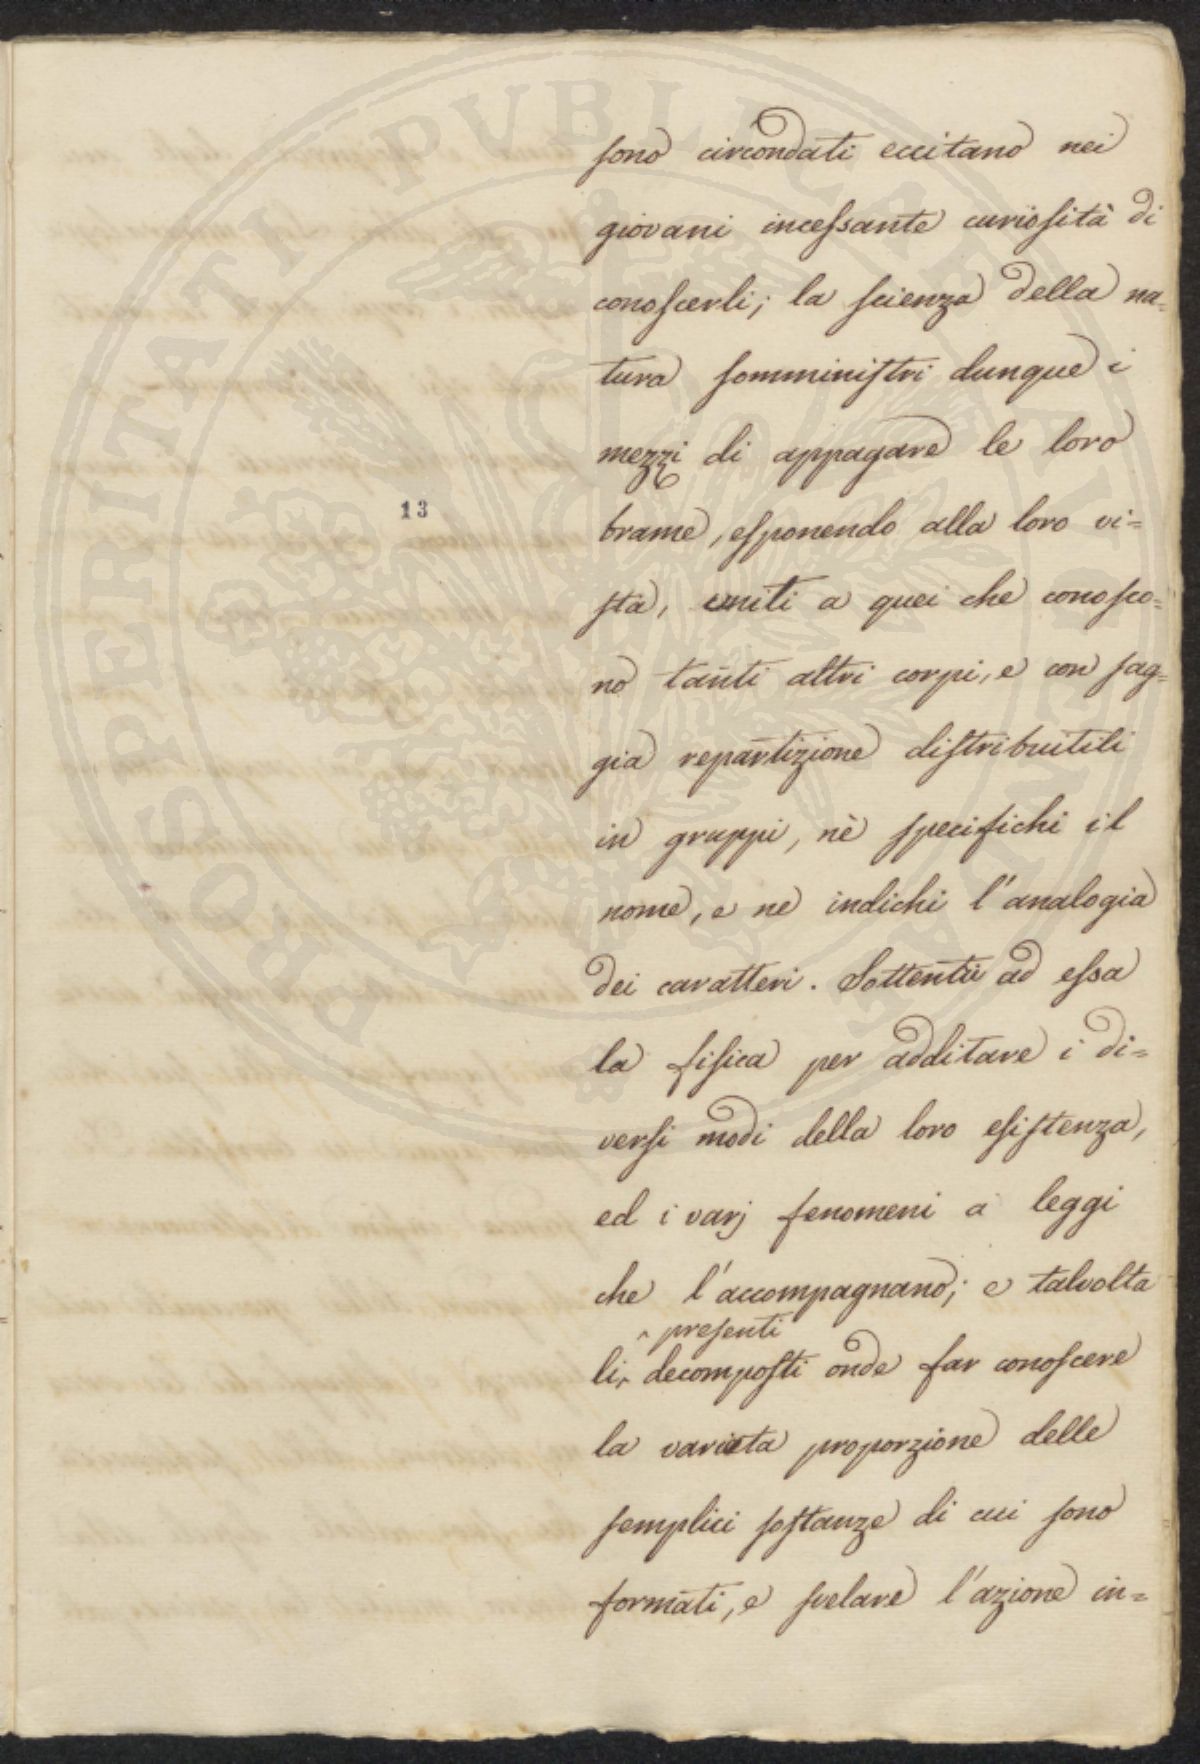 PROSPERITATI PUBLICAE AUGENDAE
13
sono circondati eccitano nei
giovani incessante curiosità di
conoscerli; la scienza della na=
tura somministri dunque i
mezzi di appagare le loro
brame, esponendo alla loro vi=
sta, uniti a quei che conosco=
no tanti altri corpi, e con sag=
gia repartizione distribuitili
in gruppi, nè specifichi il
nome, e ne indichi l'analogia
dei caratteri. Sottentri ad essa
la fisica per additare i di=
versi modi della loro esistenza,
ed i varj fenomeni a leggi
che l'accompagnano; e talvolta
^ presenti
li decomposti onde far conoscere
la variata proporzione delle
semplici sostanze di cui sono
formati, e svelare l'azione in=